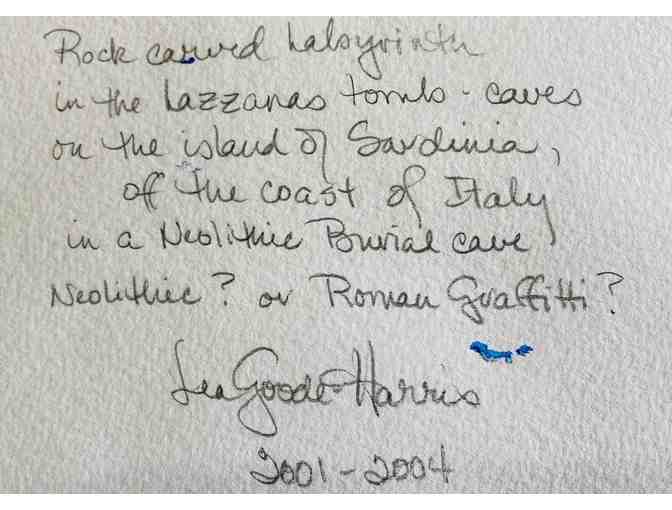 Rock carved Labyrinth
in the Lazzanas tomb-caves
on the island of Sardinia,
off the coast of Italy
in a Neolithic Burial cave
Neolithic? or Roman Graffitti?
Lea Goode-Harris
2001-2004